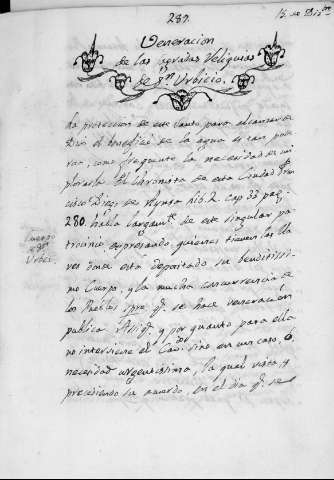 287.
15 de Dizre
Veneracion
de las sagradas Reliquias
de Sn. Urbicio.
La proteccion de este Santo para alcanzar de
Dios el beneficio de la agua es tan pode
rosa, como frequente la necesidad de im
plorarla. El Chronista de esta Ciudad Fran
cisco Diego de Aynsa lib. 2. cap. 33 pag.
280. habla largamte. de este singular pa
trocinio, expresando quienes tienen las lla
ves donde está depositado su benditissi
mo Cuerpo, y la mucha concurrencia de
los Pueblos spre. q. se hace veneracion
publica. Assi q. y por quanto para ella
no interviene el Cavo. sino en un caso, ó
necesidad urgentissima, la qual vista, y
precediendo su acuerdo, en el dia q. se
Cuerpo
de Sn.
Urbicio